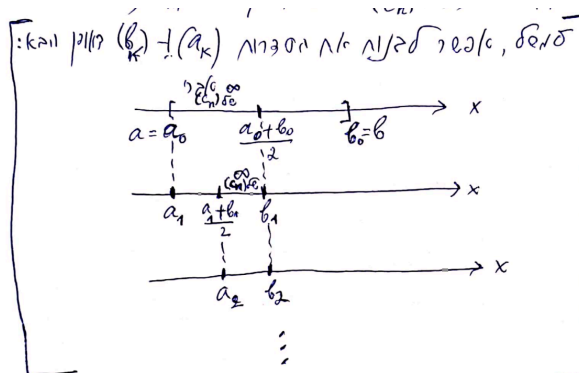 למשל, אפשר לבנות את הסדרות (a_k) ו- (b_k) באופן הבא:
∞ איברי
של (c_n)
x
a = a_0
a_0+b_0
2
b_0 = b
∞
של (c_n)
x
a_1
a_1+b_1
2
b_1
x
a_2
b_2